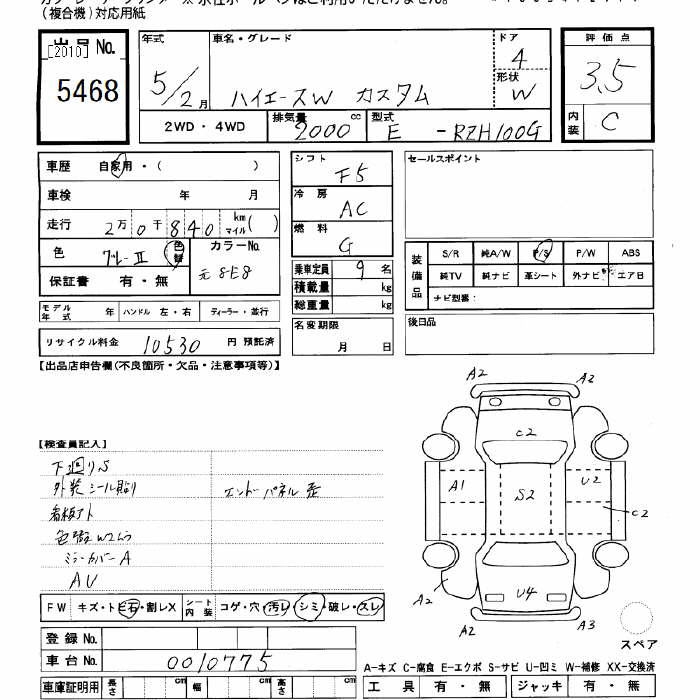 (複合機)対応用紙
出品 No.
[2010]
5468
年式
5/2月
車名・グレード
ハイエースW カスタム
ドア
4
形状
W
2WD・4WD
排気量
2000 cc
型式
E -RZH100G
評価点
3.5
内装
C
車歴 自家用・( )
車検 年 月
走行 2万0千840 km マイル( )
色 グレーII 色替
カラーNo.
元 8E8
保証書 有・無
モデル年式 年 ハンドル 左・右 ディーラー・並行
リサイクル料金 10530 円 預託済
シフト
F5
冷房
AC
燃料
G
乗車定員 9 名
積載量 kg
総重量 kg
名変期限
月 日
セールスポイント
装備品
S/R 純A/W P/S P/W ABS
純TV 純ナビ 革シート 外ナビ エア日
ナビ型番:
後日品
【出品店申告欄(不良箇所・欠品・注意事項等)】
【検査員記入】
下廻りS
外装シール貼り
エンドーパネル歪
看板アト
ミラーカバーA
AU
FW キズ・トビ石・割レX
シート内装 コゲ・穴・汚レ・シミ・破レ・スレ
登録No.
車台No. 0010775
車庫証明用 長さ cm 幅 cm 高さ cm
A2 A2
C2
A1 S2 U2
C2
A2 U4
A2 A3
スペア
A-キズ C-腐食 E-エクボ S-サビ U-凹ミ W-補修 XX-交換済
工具 有・無 ジャッキ 有・無